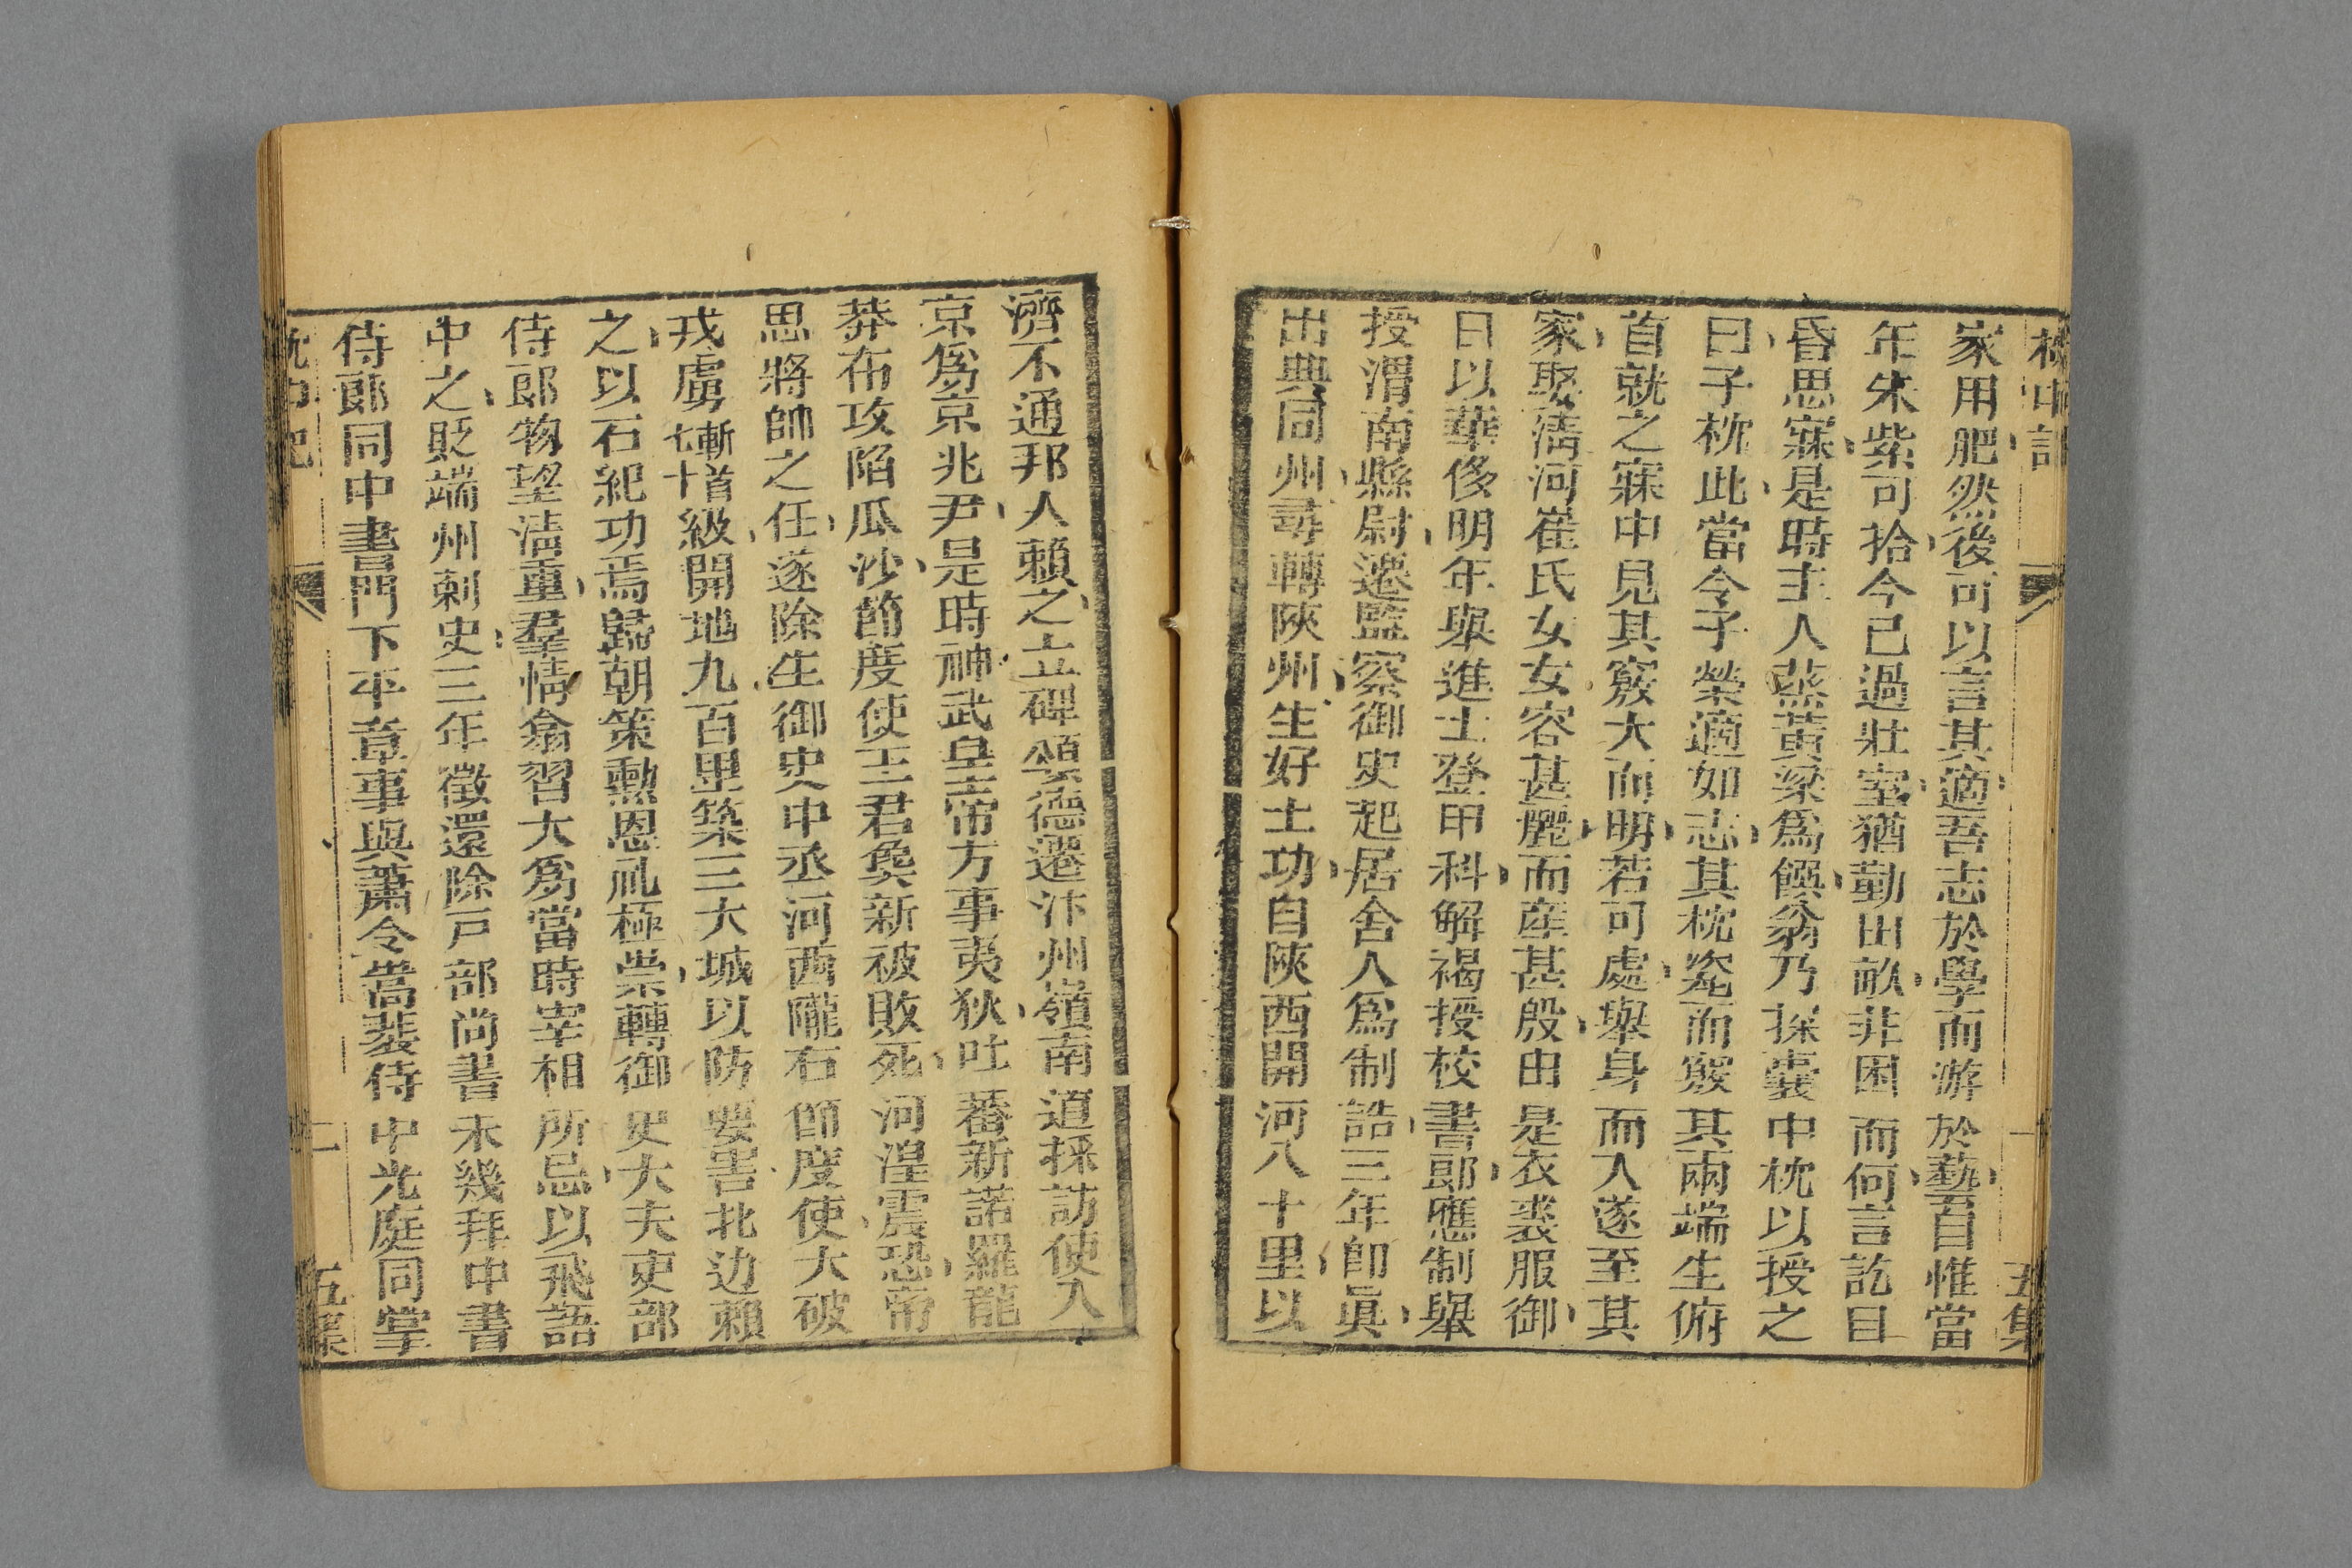 枕中記 一 五集
家用肥然後可以言其適吾志於學而游於藝自惟當
年朱紫可拾今已過壯室猶勤田畝非困而何言訖目
昏思寐是時主人蒸黃粱爲饌翁乃探囊中枕以授之
曰子枕此當令子榮適如志其枕瓷而竅其兩端生俯
首就之寐中見其竅大而明若可處舉身而入遂至其
家娶淸河崔氏女女容甚麗而產甚殷由是衣裘服御
日以華侈明年舉進士登甲科解褐授校書郎應制舉
授渭南縣尉遷監察御史起居舍人爲制誥三年卽眞
出典同州尋轉陝州生好土功自陝西開河八十里以
濟不通邦人賴之立碑頌德遷汴州嶺南道採訪使入
京爲京兆尹是時神武皇帝方事夷狄吐蕃新諾羅龍
莽布攻陷瓜沙節度使王君㚟新被敗死河湟震恐帝
思將帥之任遂除生御史中丞河西隴右節度使大破
戎虜斬首七十級開地九百里築三大城以防要害北边賴
之以石紀功焉歸朝策勳恩礼極崇轉御史大夫吏部
侍郎物望淸重羣情翕習大爲當時宰相所忌以飛語
中之貶端州刺史三年徵還除戸部尚書未幾拜中書
侍郎同中書門下平章事與蕭令嵩裴侍中光庭同掌
枕中記 二 五集